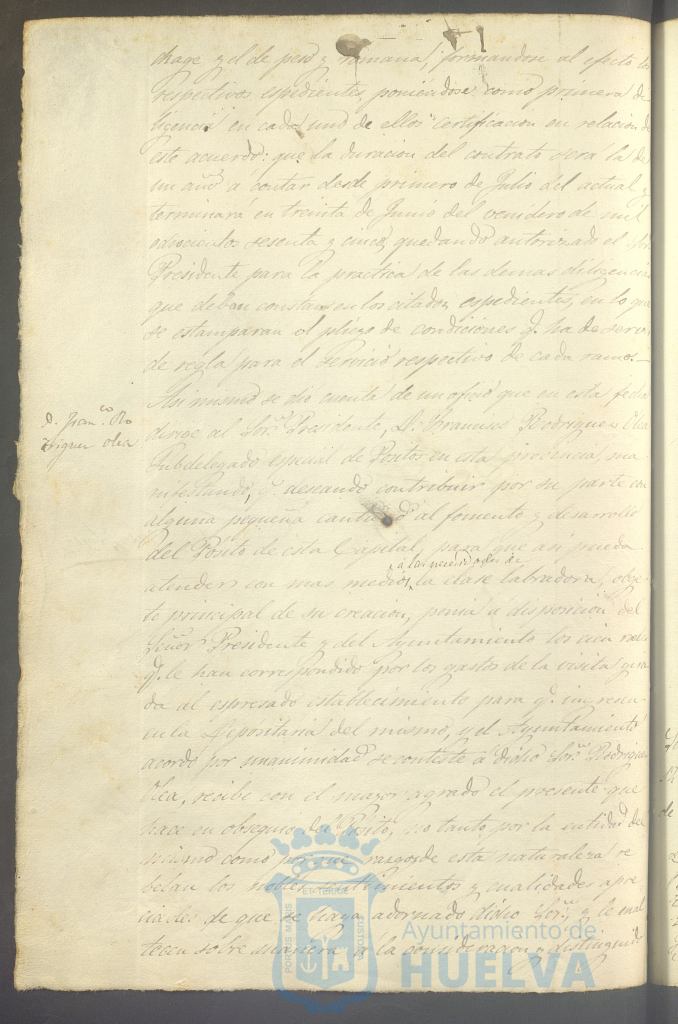 drage y el de peso y romana, formandose al efecto los
respectivos espedientes, poniendose como primera di-
ligencia en cada uno de ellos certificacion en relacion de
este acuerdo: que la duracion del contrato será la de
un año a contar desde primero de Julio del actual y
terminará en treinta de Junio del venidero de mil
ochocientos sesenta y cinco, quedando autorizado el Sor.
Presidente para la practica de las demas diligencias
que deban constar en los citados espedientes, en lo que
se estamparan el pliego de condiciones q. ha de servir
de regla para el servicio respectivo de cada ramo.
Asi mismo se dió cuenta de un oficio que en esta fecha
D. Franco. Ro
driguez Olea
dirige al Sor. Presidente, D. Francisco Rodriguez Olea
Subdelegado especial de Positos en esta provincia, ma-
nifestando, q. deseando contribuir por su parte con
alguna pequeña cantidad al fomento y desarrollo
del Posito de esta Capital, para que asi pueda
a las necesidades de
atender con mas medios la clase labradora, obje-
to principal de su creacion, ponia a disposicion del
Señor Presidente y del Ayuntamiento los cien reales
q. le han correspondido por los gastos de la visita gira-
da al espresado establecimiento para q. ingresen
en la Depositaria del mismo, y el Ayuntamiento
acordó por unanimidad se conteste a dicho Sor. Rodriguez
Olea, recibe con el mayor agrado el presente que
hace en obsequio del Posito, no tanto por la entidad del
mismo como por que rasgos de esta naturaleza re-
belan los nobles sentimientos y cualidades apre-
ciables de que se haya adornado dicho Sor. y le enal-
tecen sobre manera a la consideracion y distinguida
PORTUS MARIS
ET TERRAE
CUSTODIA
Ayuntamiento de
HUELVA